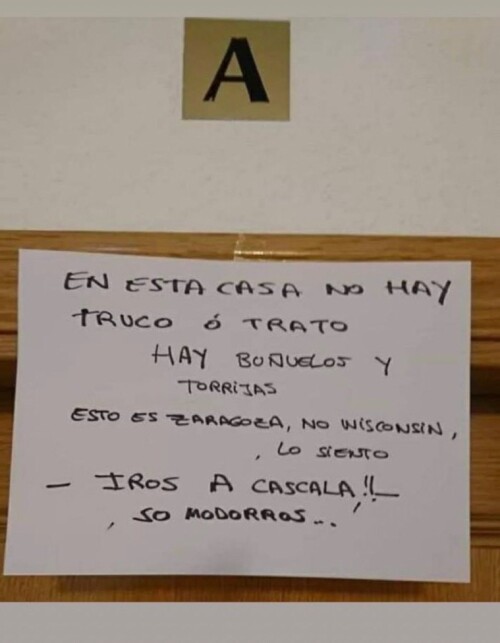 A
EN ESTA CASA NO HAY
TRUCO Ó TRATO
HAY BUÑUELOS Y
TORRIJAS
ESTO ES ZARAGOZA, NO WISCONSIN,
, LO SIENTO
- IROS A CASCALA!!
, SO MODORROS...